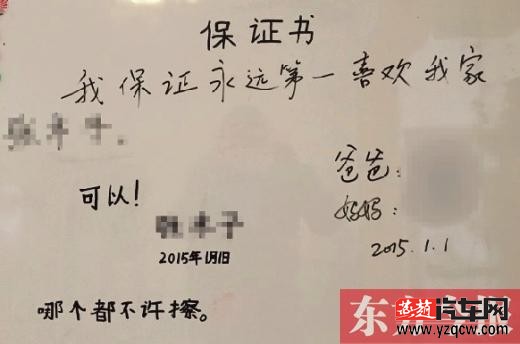 保证书
我保证永远第一喜欢我家
爸爸：
妈妈：
2015.1.1
可以！
2015年1月1日
哪个都不许擦。
东
报
燕赵汽车网
www.yzqcw.com